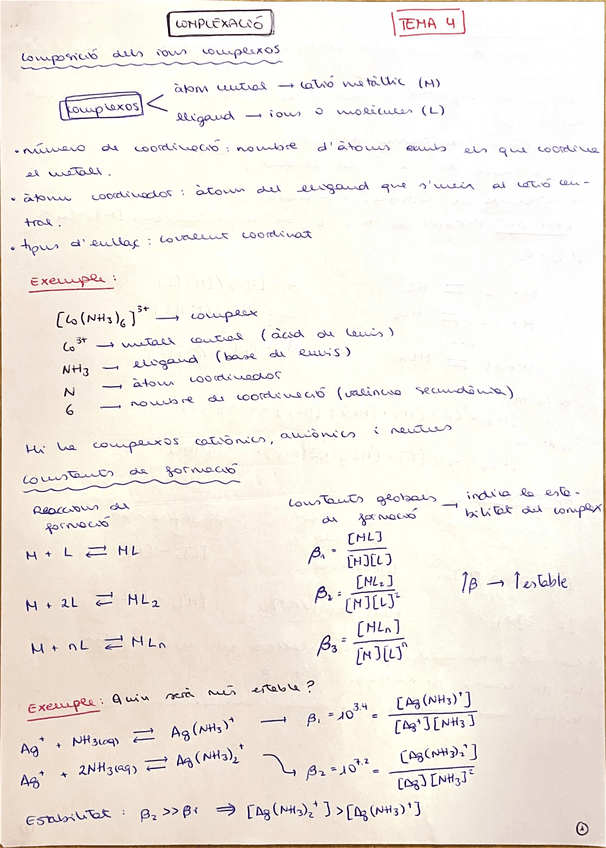 COMPLEXACIÓ
TEMA 4
Composició dels ions complexos
àtom central → catió metàl·lic (M)
Complexos
lligand → ions o molècules (L)
• número de coordinació : nombre d'àtoms amb els que coordina
el metall.
• àtom coordinador : àtom del lligand que s'uneix al catió cen-
tral.
• tipus d'enllaç : covalent coordinat
Exemple :
[Co(NH3)6]3+ → complex
Co3+ → metall central (àcid de Lewis)
NH3 → lligand (base de Lewis)
N → àtom coordinador
6 → nombre de coordinació (valència secundària)
Hi ha complexos catiònics, aniònics i neutres
Constants de formació
Reaccions de
formació
Constants globals
de formació
→ indica la esta-
bilitat del complex
M + L ⇄ ML
β1 = [ML] / [M][L]
M + 2L ⇄ ML2
β2 = [ML2] / [M][L]2
↑β → ↑estable
M + nL ⇄ MLn
β3 = [MLn] / [M][L]n
Exemple : Quin serà més estable?
Ag+ + NH3(aq) ⇄ Ag(NH3)+ → β1 = 10^3.4 = [Ag(NH3)+] / [Ag+][NH3]
Ag+ + 2NH3(aq) ⇄ Ag(NH3)2+ → β2 = 10^7.2 = [Ag(NH3)2+] / [Ag][NH3]2
Estabilitat : β2 >> β1 ⇒ [Ag(NH3)2+] > [Ag(NH3)+]